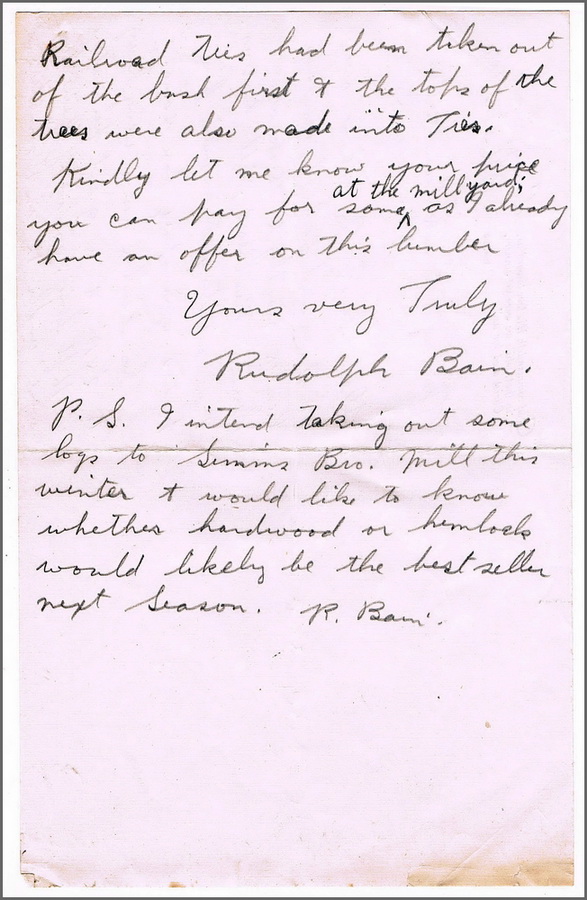 Railroad Ties had been taken out
of the bush first & the tops of the
trees were also made into Ties.
Kindly let me know your price
at the mill yard,
you can pay for same as I already
have an offer on this lumber
Yours very Truly
Rudolph Bain.
P. S. I intend taking out some
logs to Simms Bro. Mill this
winter & would like to know
whether hardwood or hemlock
would likely be the best seller
next Season. R. Bain.